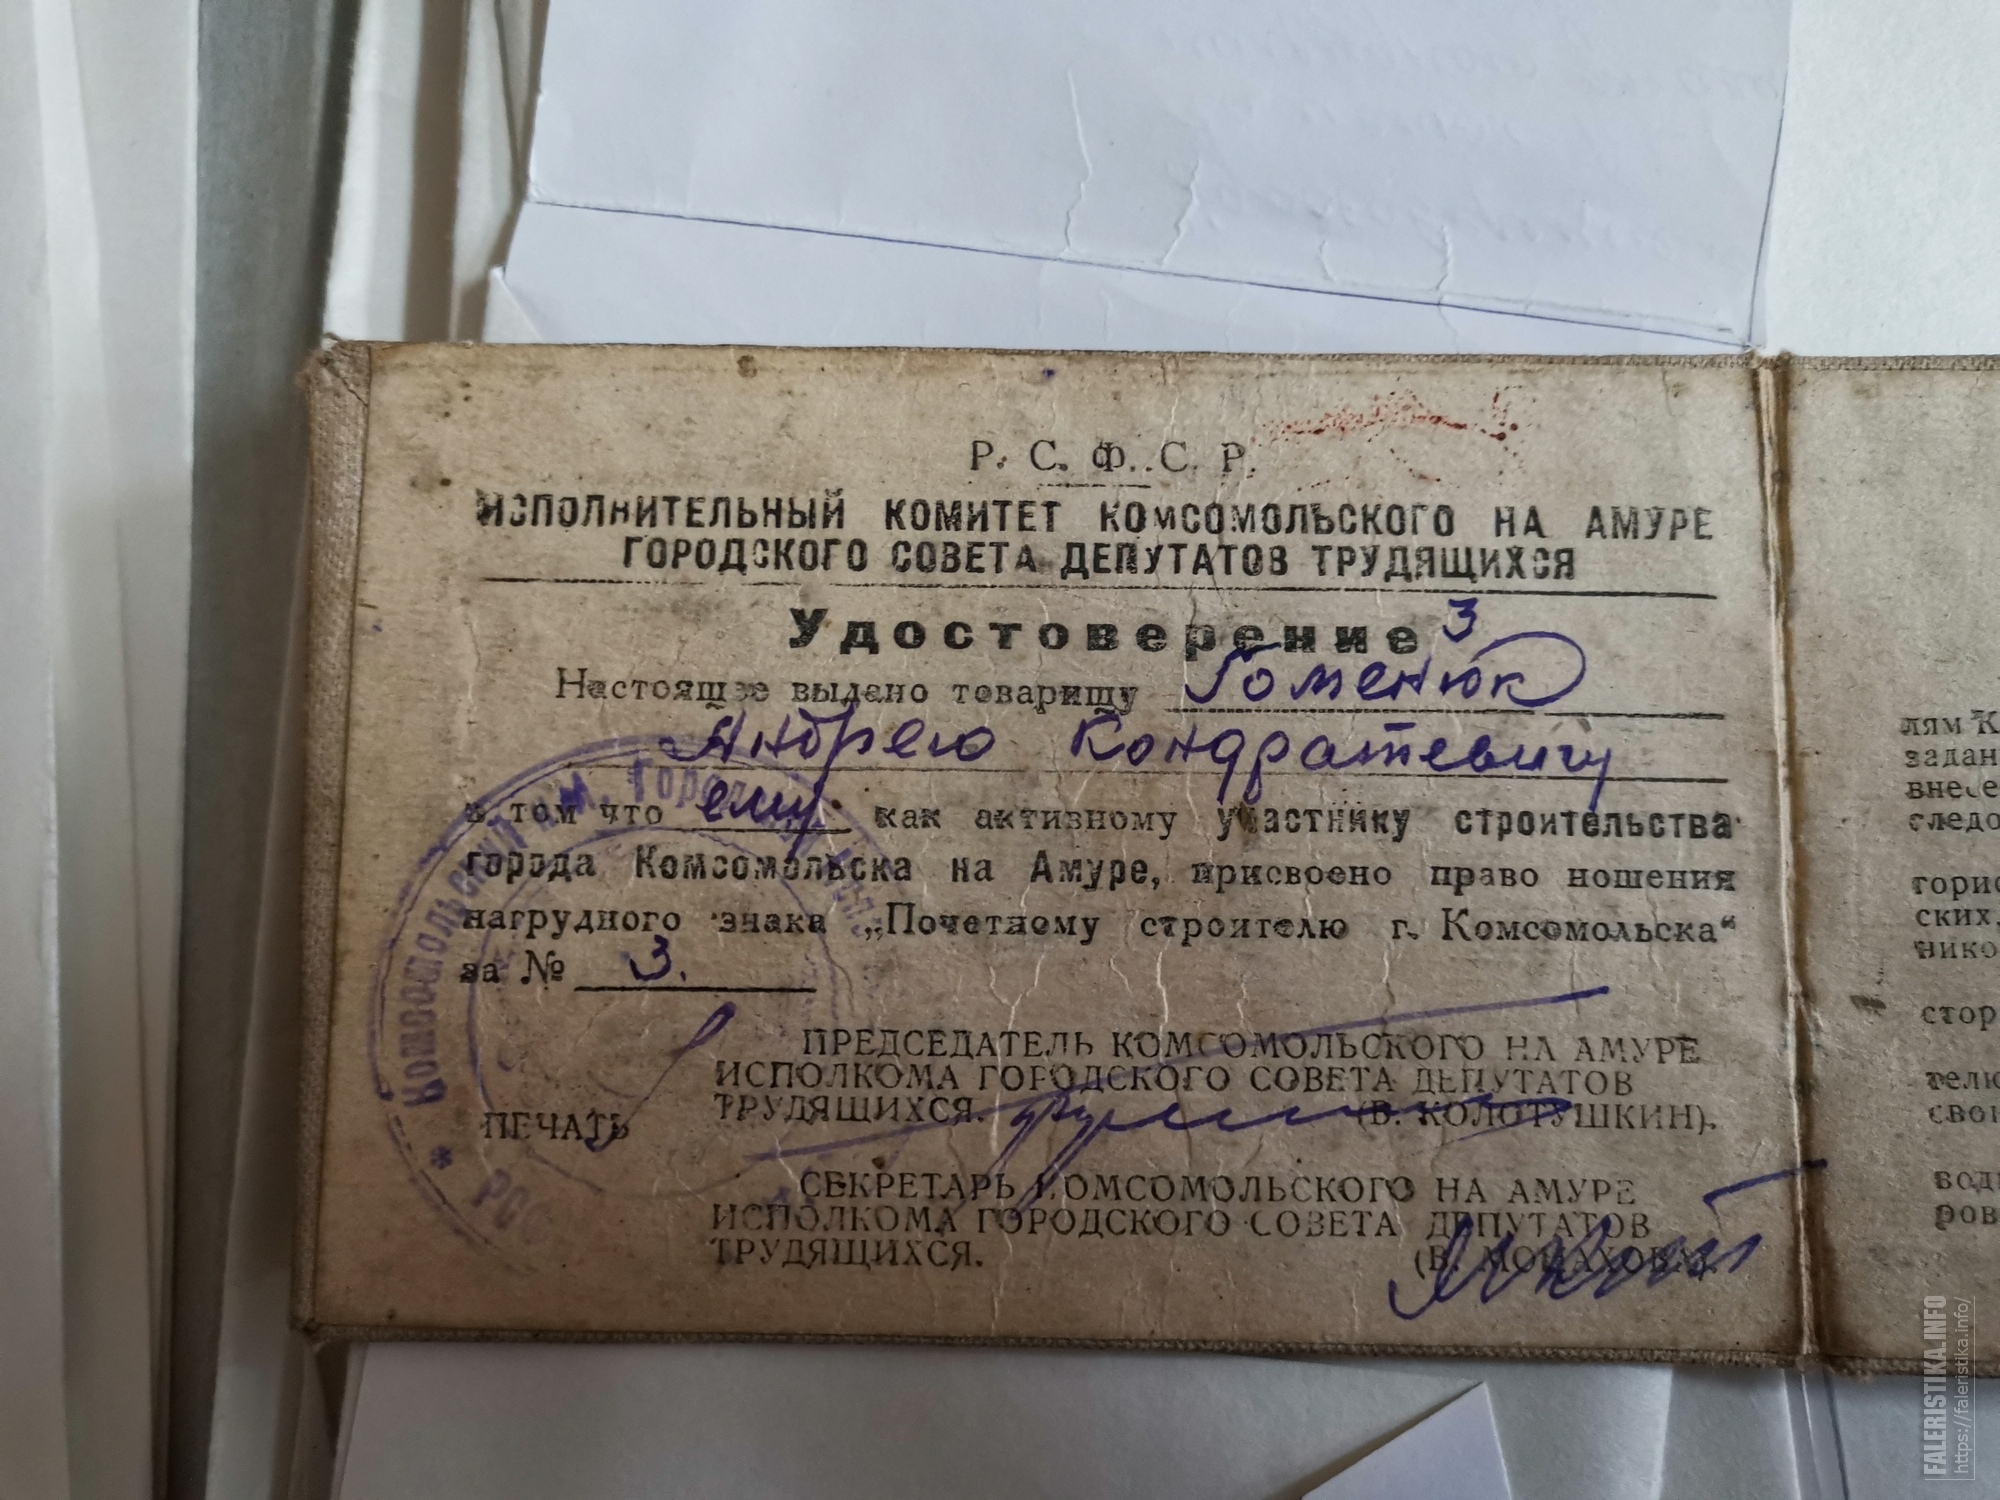 Р. С. Ф. С. Р.
ИСПОЛНИТЕЛЬНЫЙ КОМИТЕТ КОМСОМОЛЬСКОГО НА АМУРЕ
ГОРОДСКОГО СОВЕТА ДЕПУТАТОВ ТРУДЯЩИХСЯ
Удостоверение 3
Настоящее выдано товарищу Гоменюк
Андрею Кондратевичу
в том что ему как активному участнику строительства
города Комсомольска на Амуре, присвоено право ношения
нагрудного знака „Почетному строителю г. Комсомольска“
за № 3.
ПРЕДСЕДАТЕЛЬ КОМСОМОЛЬСКОГО НА АМУРЕ
ИСПОЛКОМА ГОРОДСКОГО СОВЕТА ДЕПУТАТОВ
ТРУДЯЩИХСЯ. (В. КОЛОТУШКИН).
ПЕЧАТЬ
СЕКРЕТАРЬ КОМСОМОЛЬСКОГО НА АМУРЕ
ИСПОЛКОМА ГОРОДСКОГО СОВЕТА ДЕПУТАТОВ
ТРУДЯЩИХСЯ.
лям К
задан
внесе
следо
торис
ских,
нико
стор
телю
свои
води
ров
FALERISTIKA.INFO
https://faleristika.info/